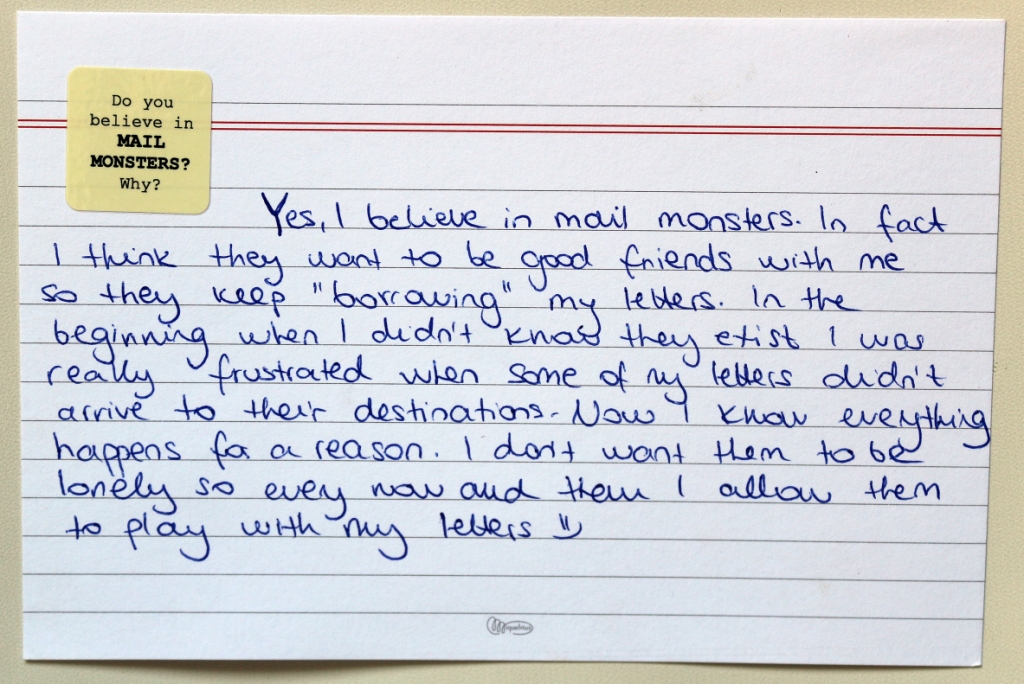 Do you
believe in
MAIL
MONSTERS?
Why?
Yes, I believe in mail monsters. In fact
I think they want to be good friends with me
so they keep "borrowing" my letters. In the
beginning when I didn't know they exist I was
really frustrated when some of my letters didn't
arrive to their destinations. Now I know everything
happens for a reason. I don't want them to be
lonely so every now and them I allow them
to play with my letters :)